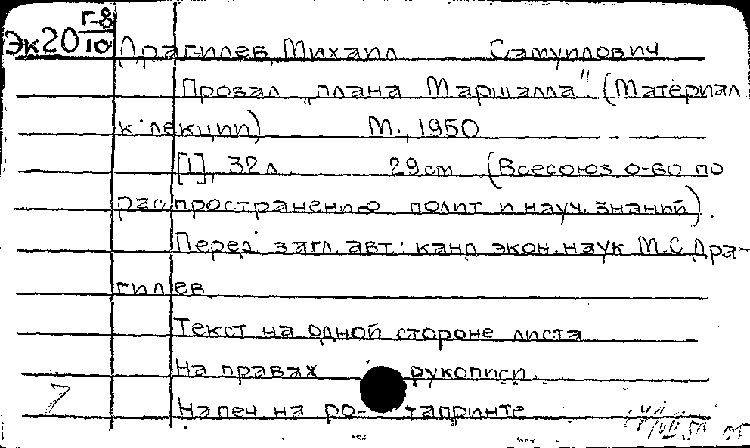 Эк20 Г-8/10
Драгилев, Михаил Самуилович
Провал „плана Маршалла" (Материал
к лекции) М., 1950
[1], 32 л. 29 см (Всесоюз. о-во по
распространению полит. и науч. знаний).
Перед загл. авт.: канд. экон. наук М.С. Дра-
гилев
Текст на одной стороне листа
На правах рукописи.
Напеч. на ро- тапринте